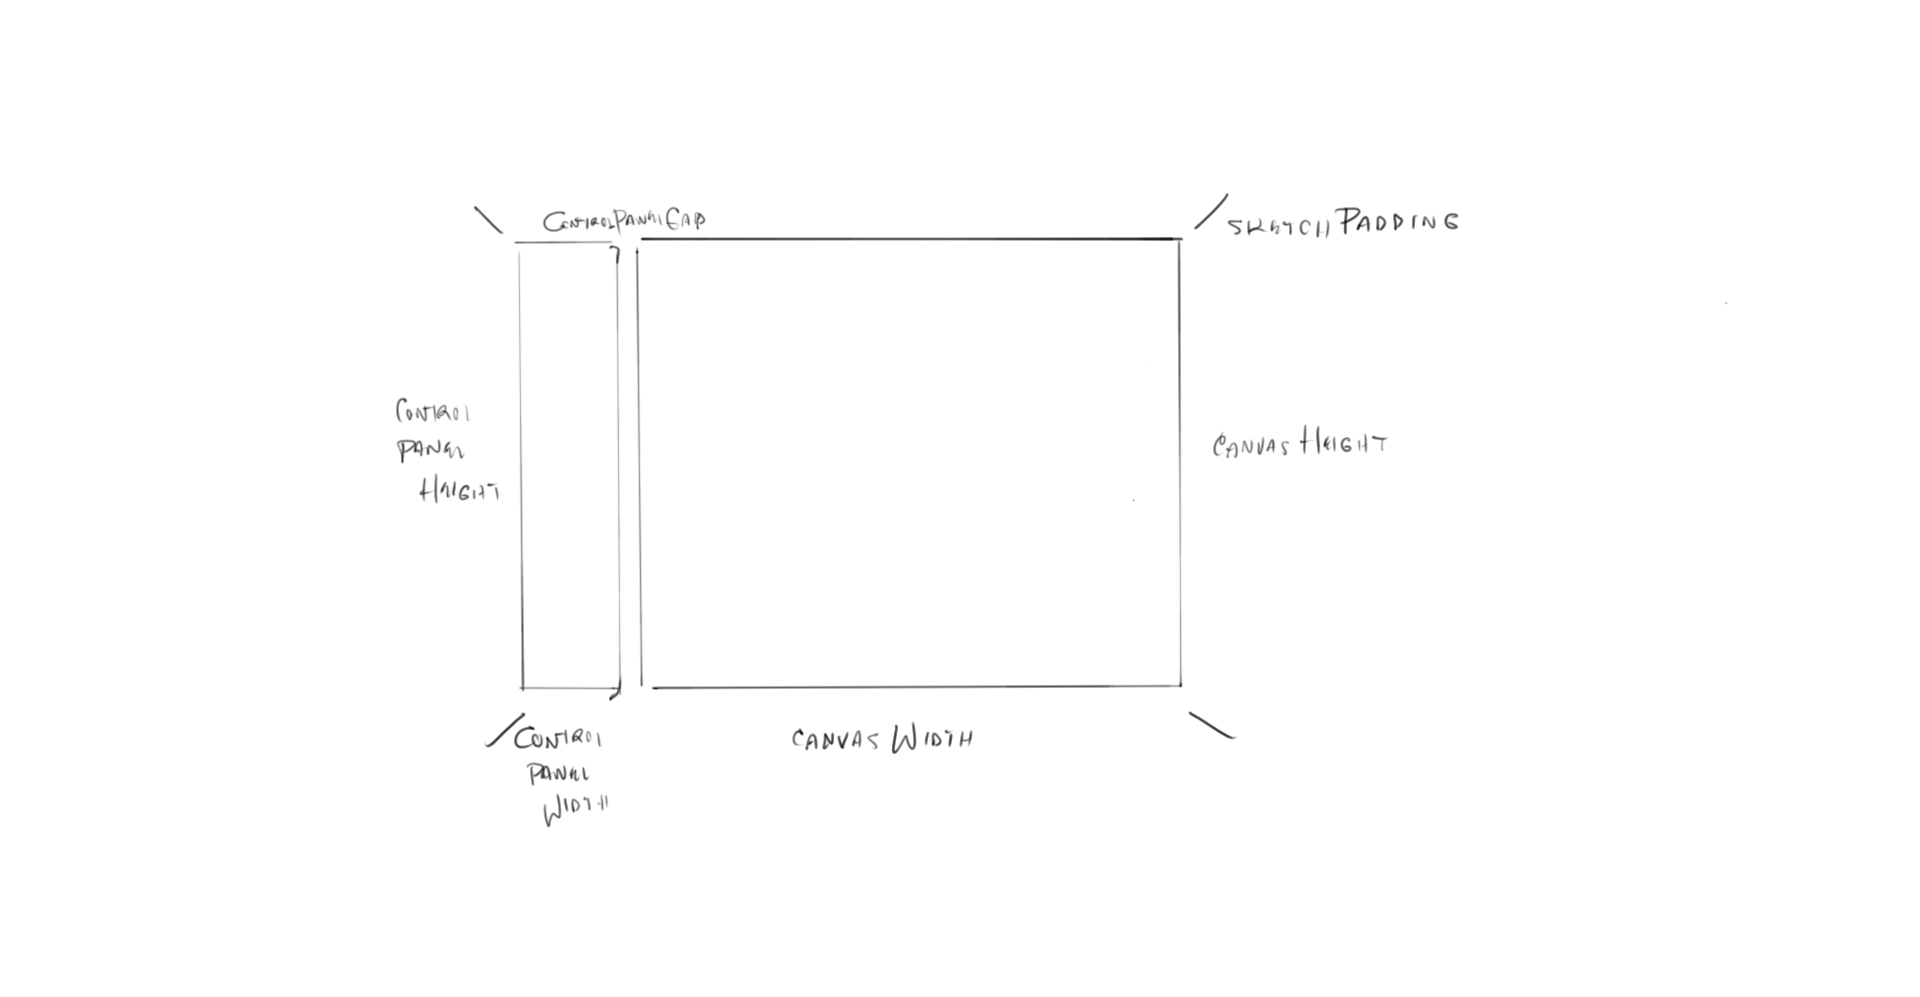 ControlPanelGap
SketchPadding
Control
Panel
Height
Canvas Height
Control
Panel
Width
Canvas Width